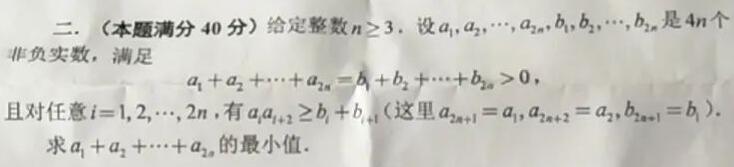 二．（本题满分 40 分）给定整数 n ≥ 3．设 a₁, a₂, ⋯, a₂ₙ, b₁, b₂, ⋯, b₂ₙ 是 4n 个
非负实数，满足
a₁ + a₂ + ⋯ + a₂ₙ = b₁ + b₂ + ⋯ + b₂ₙ > 0，
且对任意 i = 1, 2, ⋯, 2n，有 aᵢaᵢ₊₂ ≥ bᵢ + bᵢ₊₁（这里 a₂ₙ₊₁ = a₁, a₂ₙ₊₂ = a₂, b₂ₙ₊₁ = b₁）．
求 a₁ + a₂ + ⋯ + a₂ₙ 的最小值．